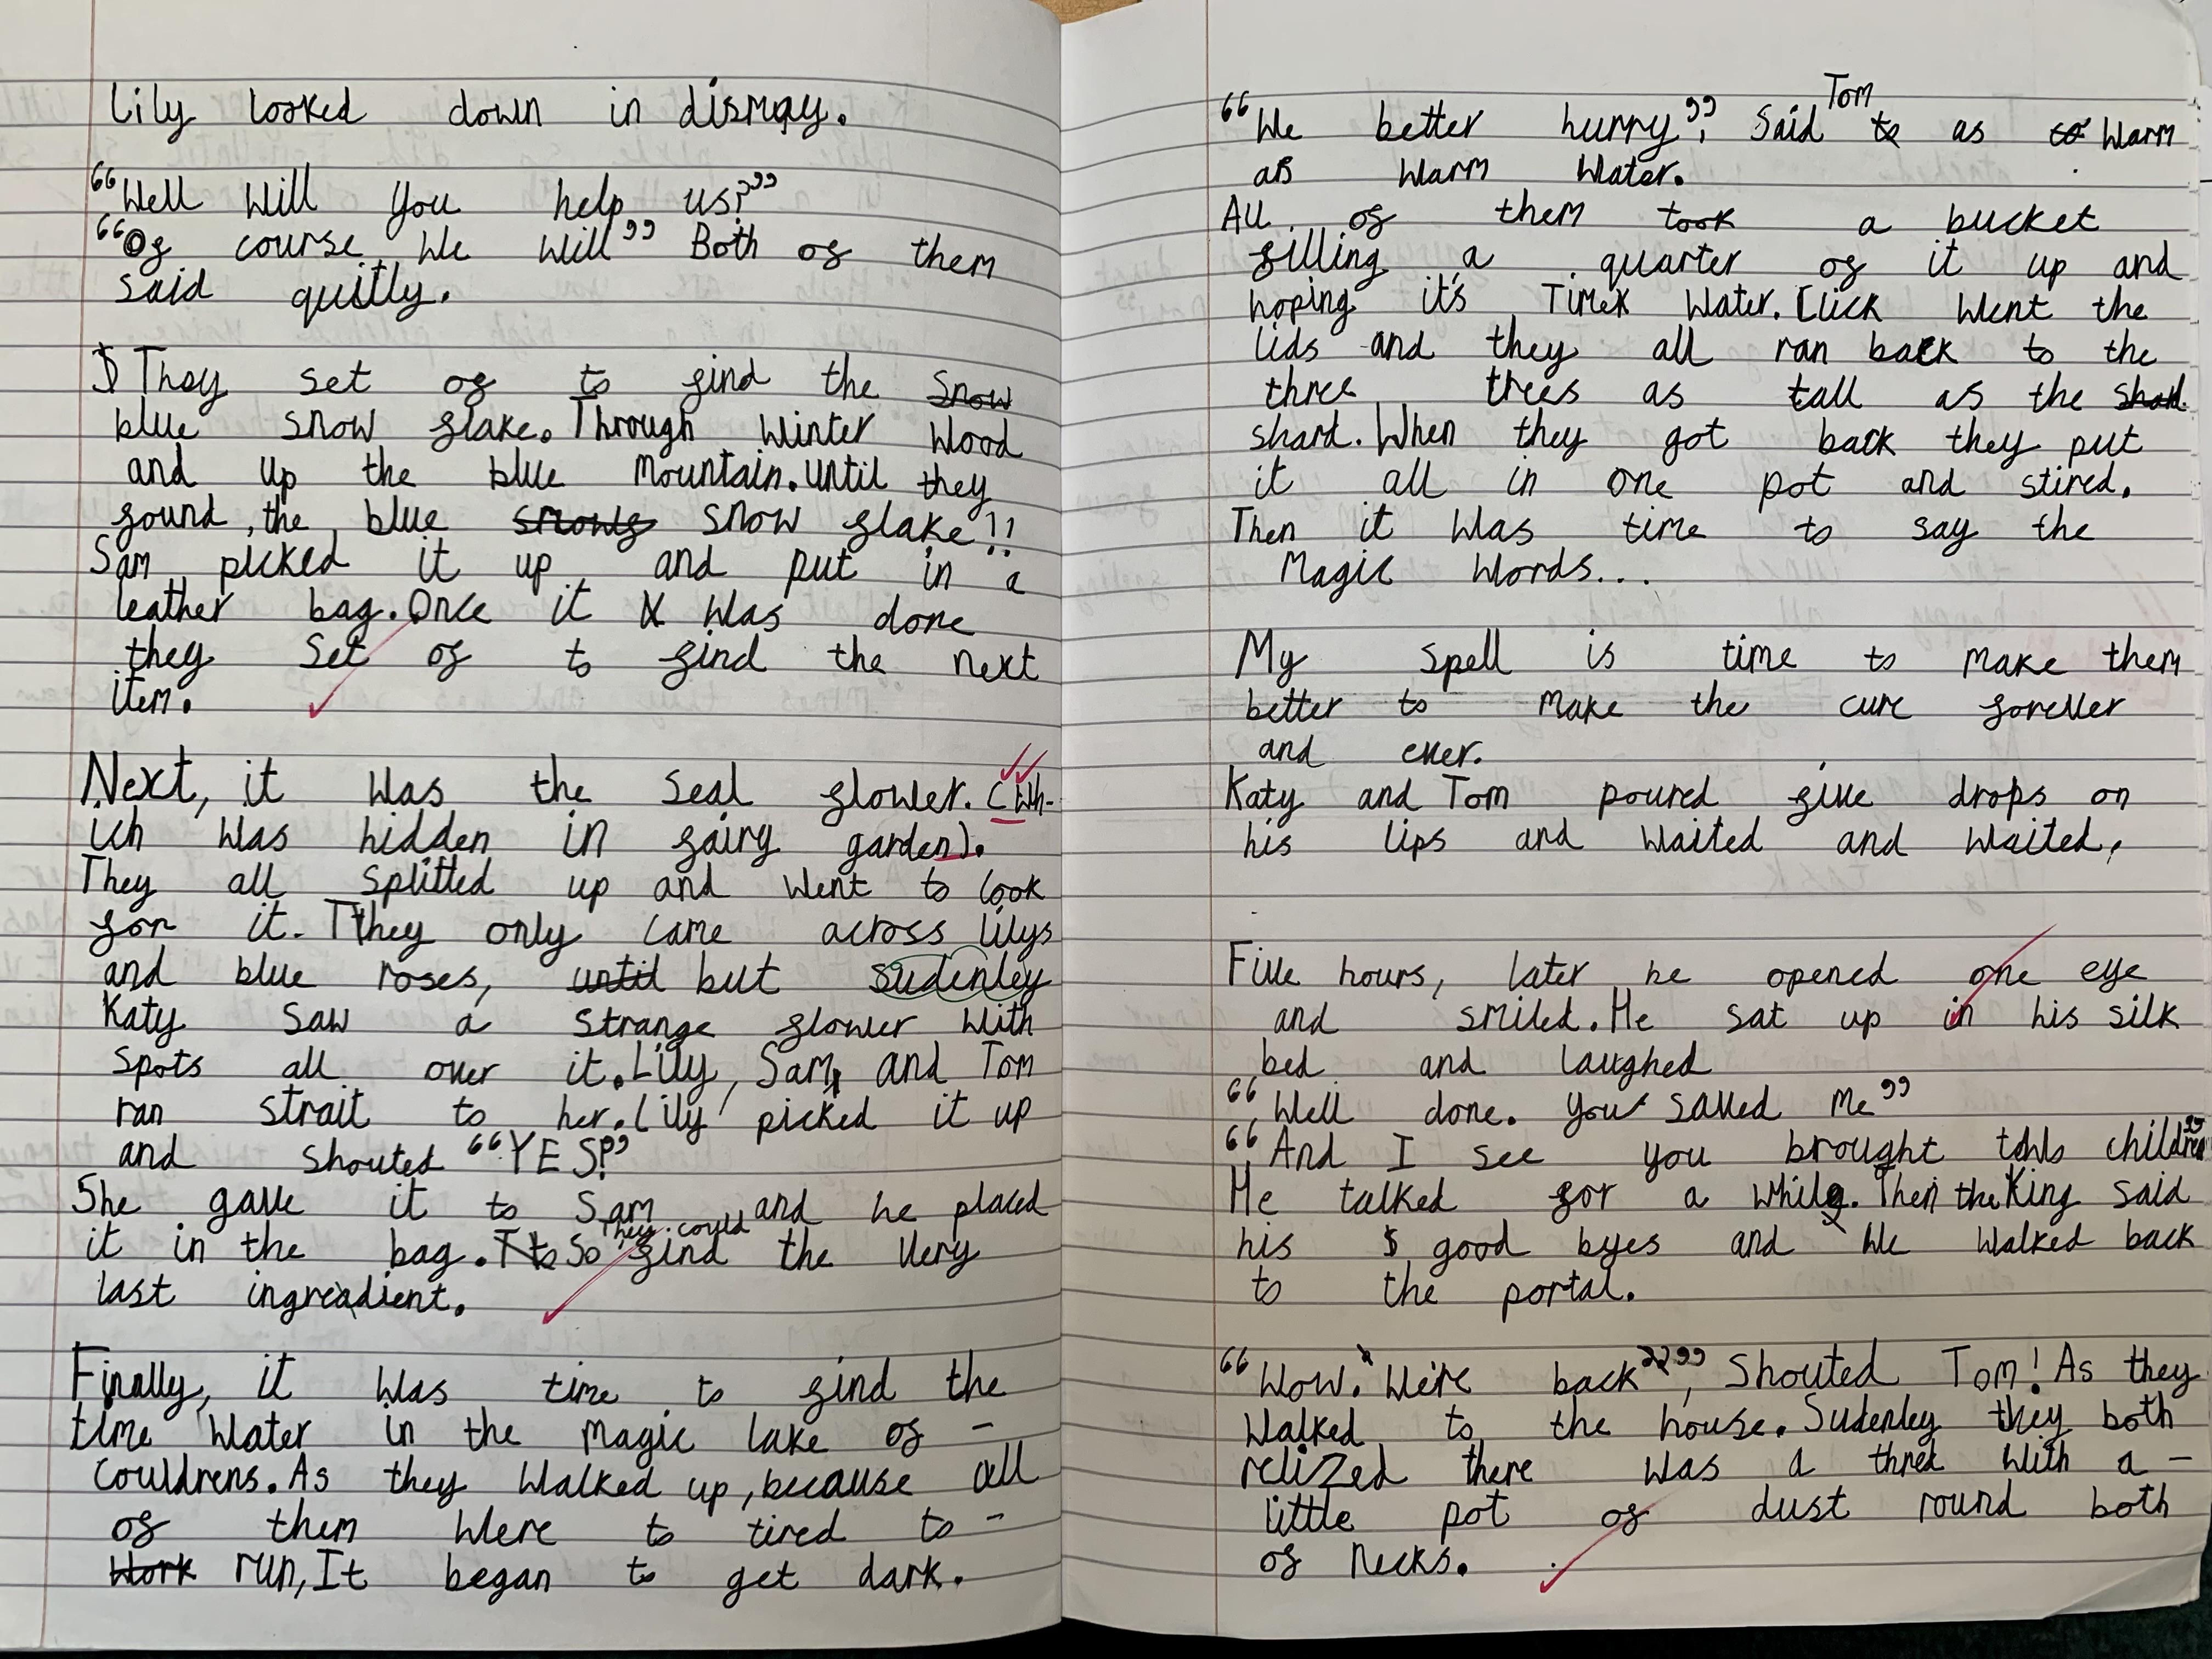 Lily looked down in dismay.
“Well will you help us?”
“Of course we will” Both of them
said quitly.
They set of to find the snow
blue snow flake. Through winter wood
and up the blue mountain. until they
found, the blue snows snow flake!!
Sam picked it up and put in a
leather bag. Once it was done
they set of to find the next
item.
Next, it was the seal flower. (wh-
ich was hidden in fairy garden).
They all splitted up and went to look
for it. They only came across lilys
and blue roses, until but sudenley
Katy saw a strange flower with
spots all over it. Lily, Sam, and Tom
ran strait to her. Lily picked it up
and shouted “YES!”
She gave it to Sam and he placed
they could
it in the bag. So find the very
last ingredient.
Finally, it was time to find the
time water in the magic lake of -
couldrens. As they walked up, because all
of them were to tired to -
work run, It began to get dark.
Tom
“We better hurry”, said to as to warm
as warm water.
All of them took a bucket
filling a quarter of it up and
hoping it's Timex water. Click went the
lids and they all ran back to the
three trees as tall as the shad.
shard. When they got back they put
it all in one pot and stired.
Then it was time to say the
magic words...
My spell is time to make them
better to make the cure forever
and ever.
Katy and Tom poured five drops on
his lips and waited and waited,
Five hours, later he opened one eye
and smiled. He sat up in his silk
bed and laughed
“Well done. you saved me”
“And I see you brought children”
He talked for a while. Then the King said
his good byes and we walked back
to the portal.
“Wow. We're back”, shouted Tom! As they
walked to the house. Sudenley they both
relized there was a thred with a -
little pot of dust round both
of necks.